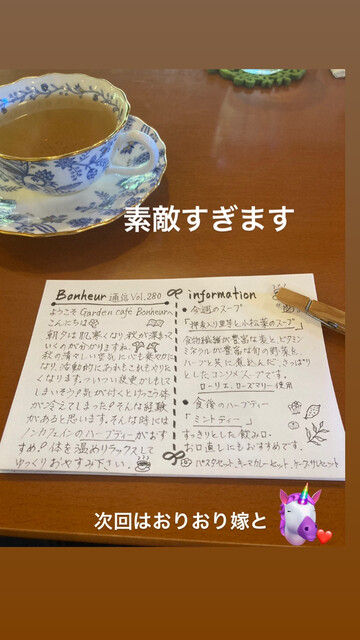 素敵すぎます
Bonheur 通信 Vol.280
ようこそ Garden cafe Bonheurへ
こんにちは
朝夕は肌寒くなり秋が深まって
いくのが分かりますね。
秋の清々しい空気に心も爽やかに
なり、活動的にあれもこれもやりた
くなります。ついつい夜更かしもして
しまいそう?気が付くとけっこう体
が冷えてしまった?そんな経験
があると思います。そんな時には
ノンカフェインのハーブティーがおす
すめ?体を温めリラックスして
ゆっくりおやすみ下さい。
information
今週のスープ
「押麦入り里芋と小松菜のスープ」
食物繊維が豊富な麦と、ビタミン
ミネラルが豊富な旬の野菜を
ハーブと共に煮込んだ、さっぱり
としたコンソメスープです。
ローリエ、ローズマリー使用
食後のハーブティー
「ミントティー」
すっきりとした飲み口。
お口直しにもおすすめです。
パスタセット、キーマカレーセット、トーストセット
次回はおりおり嫁と